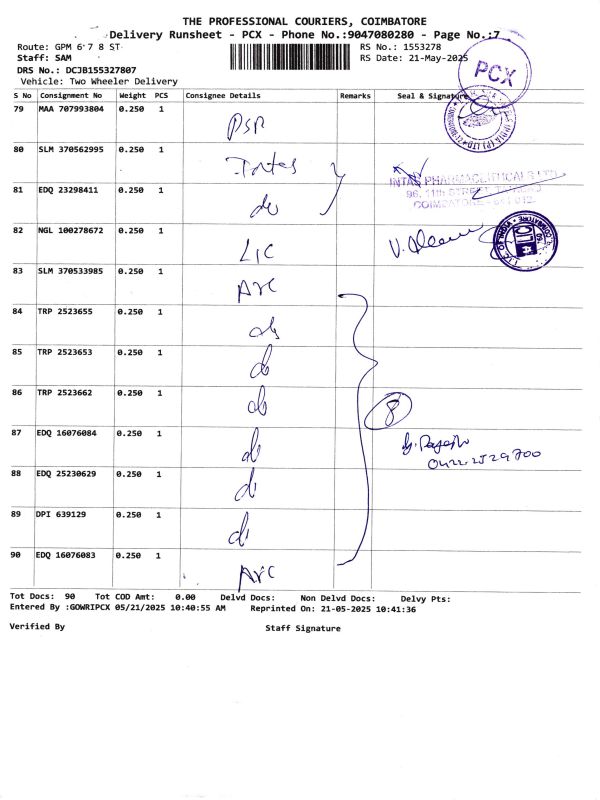 THE PROFESSIONAL COURIERS, COIMBATORE
Delivery Runsheet - PCX - Phone No.:9047080280 - Page No.:7
Route: GPM 6 7 8 ST
RS No.: 1553278
Staff: SAM
RS Date: 21-May-2025
DRS No.: DCJB155327807
Vehicle: Two Wheeler Delivery
PCX
S No Consignment No Weight PCS Consignee Details Remarks Seal & Signature
79 MAA 707993804 0.250 1 PSP
80 SLM 370562995 0.250 1 Intas
INTAS PHARMACEUTICALS LTD
96, 11th STREET, TATABAD
COIMBATORE - 641 012
81 EDQ 23298411 0.250 1 do
82 NGL 100278672 0.250 1 LIC
83 SLM 370533985 0.250 1 ARC
84 TRP 2523655 0.250 1 do
85 TRP 2523653 0.250 1 do
86 TRP 2523662 0.250 1 do 8
87 EDQ 16076084 0.250 1 do
0422-2529700
88 EDQ 25230629 0.250 1 do
89 DPI 639129 0.250 1 do
90 EDQ 16076083 0.250 1 ARC
Tot Docs: 90 Tot COD Amt: 0.00 Delvd Docs: Non Delvd Docs: Delvy Pts:
Entered By :GOWRIPCX 05/21/2025 10:40:55 AM Reprinted On: 21-05-2025 10:41:36
Verified By Staff Signature